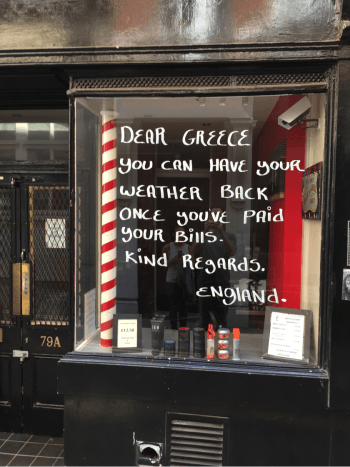 DEAR GREECE
YOU CAN HAVE YOUR
WEATHER BACK
ONCE YOU'VE PAID
YOUR BILLS.
KIND REGARDS.
ENGLAND.
£12.50
79A